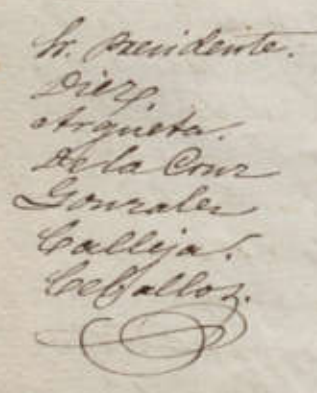 Sr. Presidente.
Diez.
Argueta.
De la Cruz
Gonzalez
Calleja.
Ceballoz.